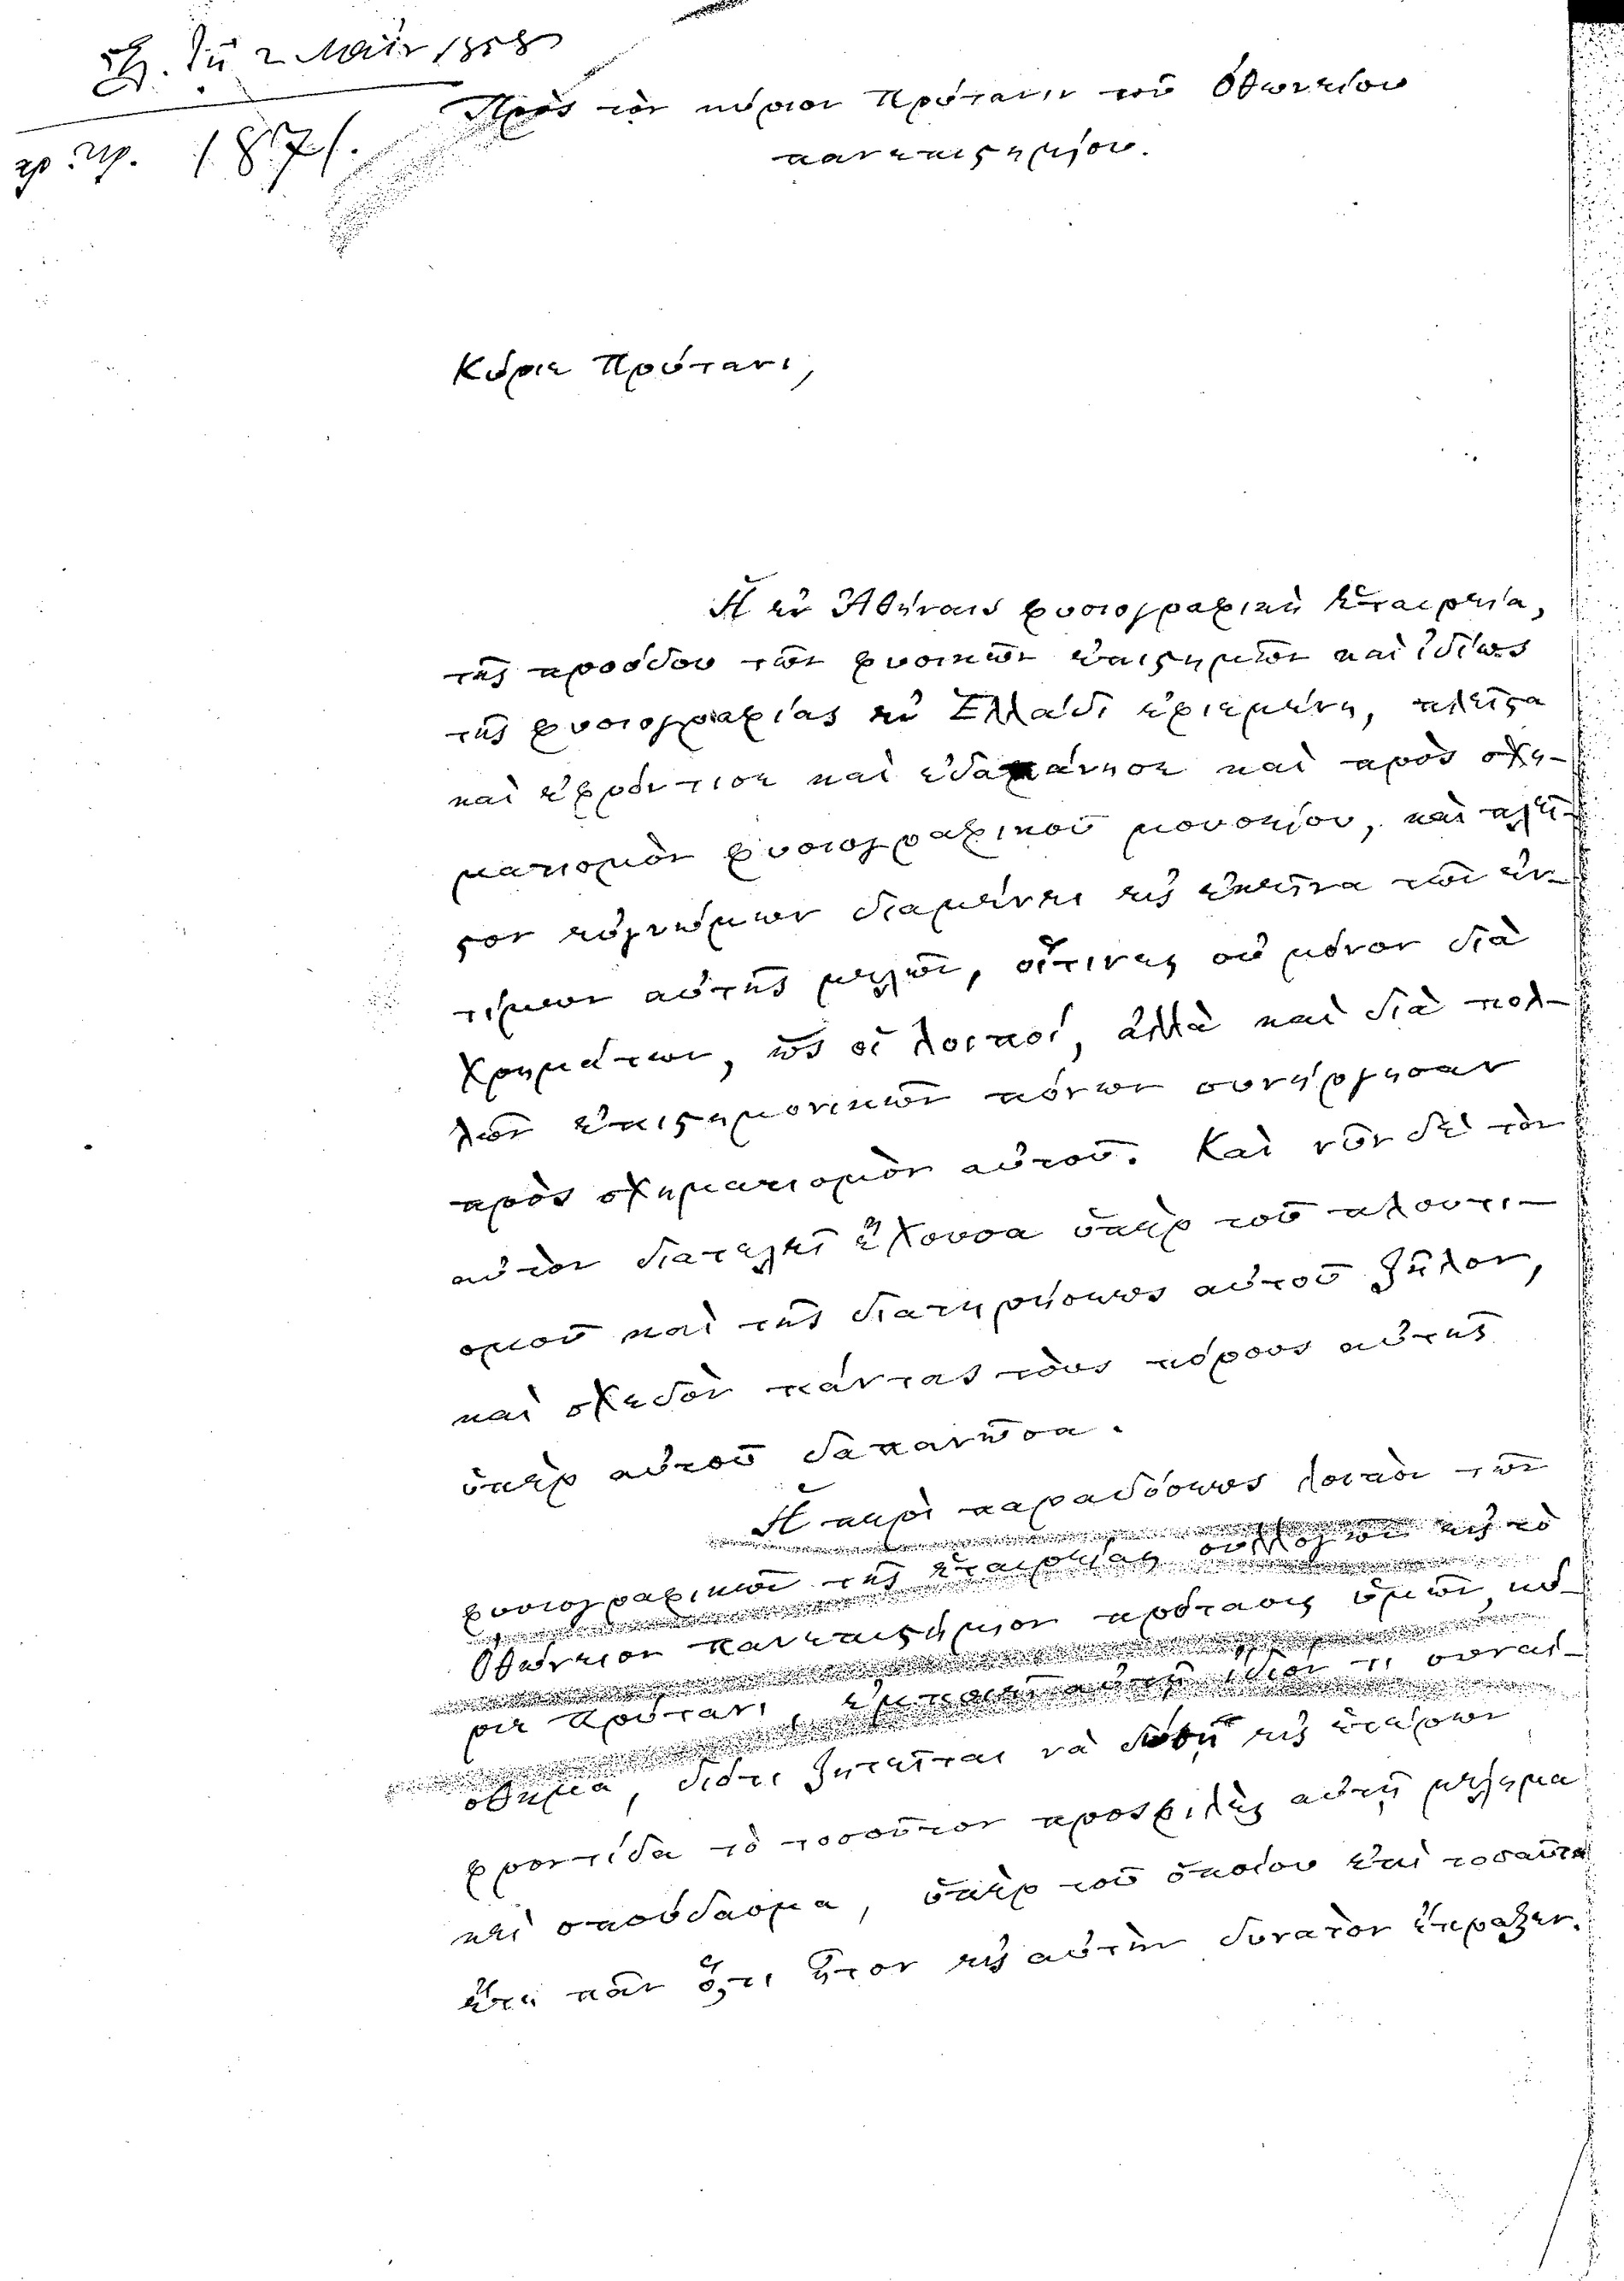 τῇ 2 Μαΐου 1858
ἀρ. πρ. 1871.
Πρὸς τὸν κύριον Πρύτανιν τοῦ Ὀθωνείου
πανεπιστημίου.
Κύριε Πρύτανι,
Ἡ ἐν Ἀθήναις φυσιογραφικὴ ἑταιρεία,
τῆς προόδου τῶν φυσικῶν ἐπιστημῶν καὶ ἰδίως
τῆς φυσιογραφίας ἐν Ἑλλάδι ἐφιεμένη, πλεῖστα
καὶ ἐφρόντισε καὶ ἐδαπάνησε καὶ πρὸς σχη-
ματισμὸν φυσιογραφικοῦ μουσείου, καὶ πλεῖ-
στον εὐγνώμων διαμένει εἰς ἐκεῖνα τῶν ἐν-
τίμων αὐτῆς μελῶν, οἵτινες οὐ μόνον διὰ
χρημάτων, ὡς οἱ λοιποί, ἀλλὰ καὶ διὰ πολ-
λῶν ἐπιστημονικῶν πόνων συνήργησαν
πρὸς σχηματισμὸν αὐτοῦ. Καὶ νῦν δὲ τὸν
αὐτὸν διατελεῖ ἔχουσα ὑπὲρ τοῦ πλουτι-
σμοῦ καὶ τῆς διατηρήσεως αὐτοῦ ζῆλον,
καὶ σχεδὸν πάντας τοὺς πόρους αὐτῆς
ὑπὲρ αὐτοῦ δαπανῶσα.
Ἡ περὶ παραδόσεως λοιπὸν τῶν
φυσιογραφικῶν τῆς ἑταιρείας συλλογῶν εἰς τὸ
Ὀθώνειον πανεπιστήμιον πρότασις ὑμῶν, κύ-
ριε Πρύτανι, ἐμποιεῖ αὐτῇ ἴδιόν τι συναί-
σθημα, διότι ζητεῖται νὰ δοθῇ εἰς ἑτέρων
φροντίδα τὸ τοσοῦτον προσφιλὲς αὐτῇ μέλημα
καὶ σπούδασμα, ὑπὲρ τοῦ ὁποίου ἐπὶ τοσαῦτα
ἔτη πᾶν ὅ,τι ἦτον εἰς αὐτὴν δυνατὸν ἔπραξεν.